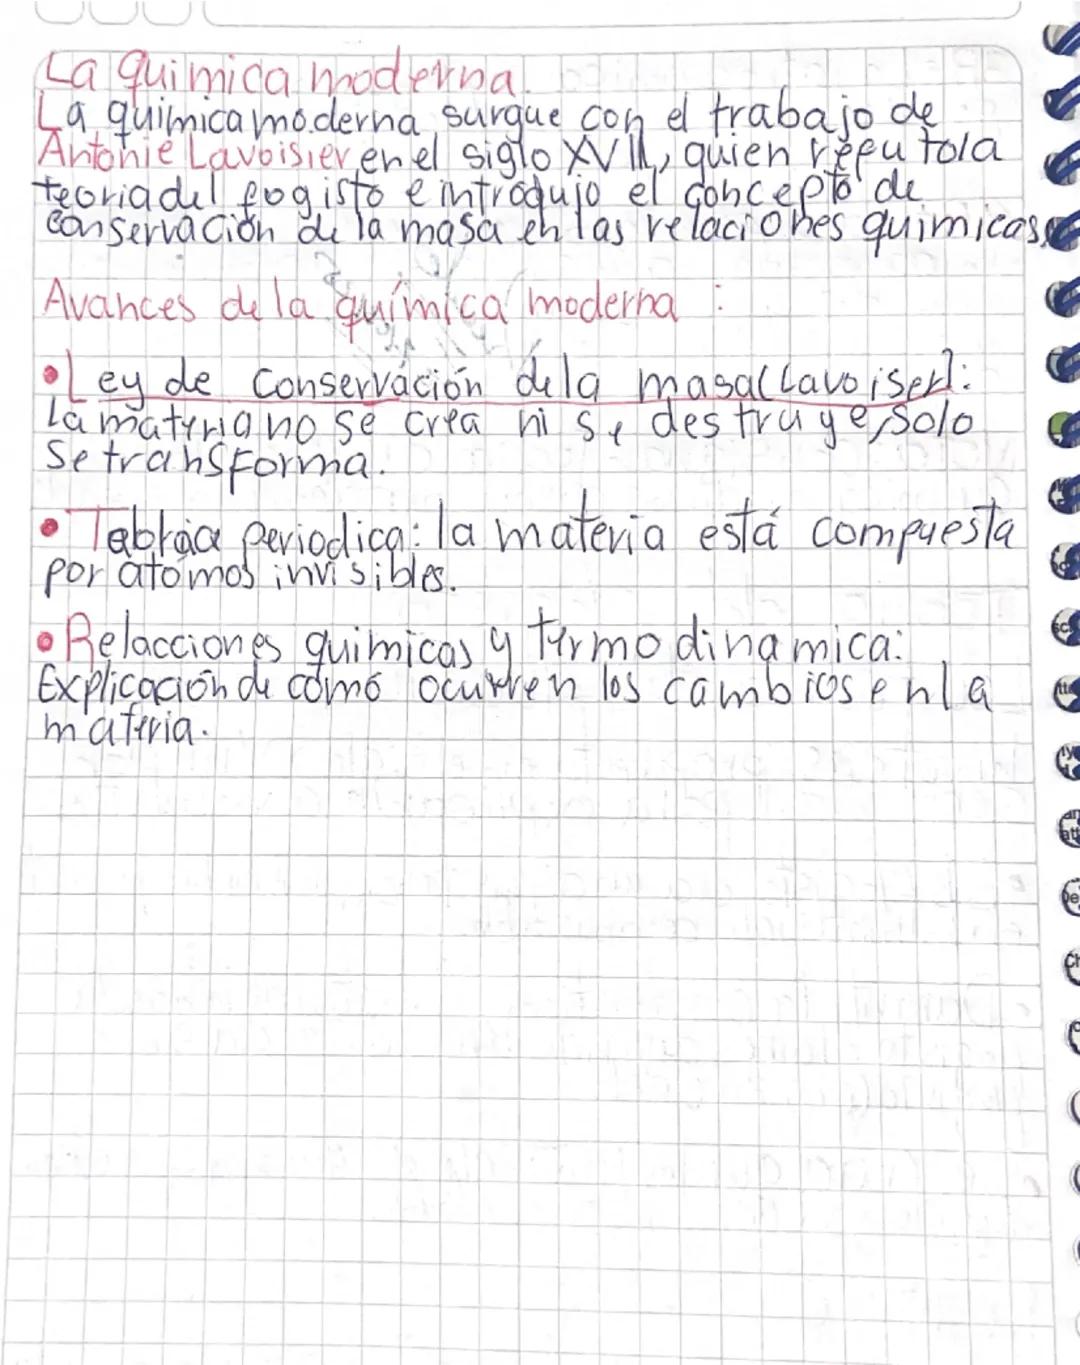 La quimica moderna.
La quimica moderna surgue con el trabajo de
Antonie Lavoisier en el siglo XVIII, quien refuto la
teoria del fogisto e introdujo el concepto de
conservación de la masa en las relaciones quimicas.
Avances de la química moderna :
• Ley de Conservación de la masa (Lavoiser):
La materia no se crea ni se destruye, solo
Se transforma.
• periodica: la materia está compuesta
por atomos invisibles.
• Relacciones quimicas y termodinamica:
Explicación de como ocurren los cambios en la
materia.